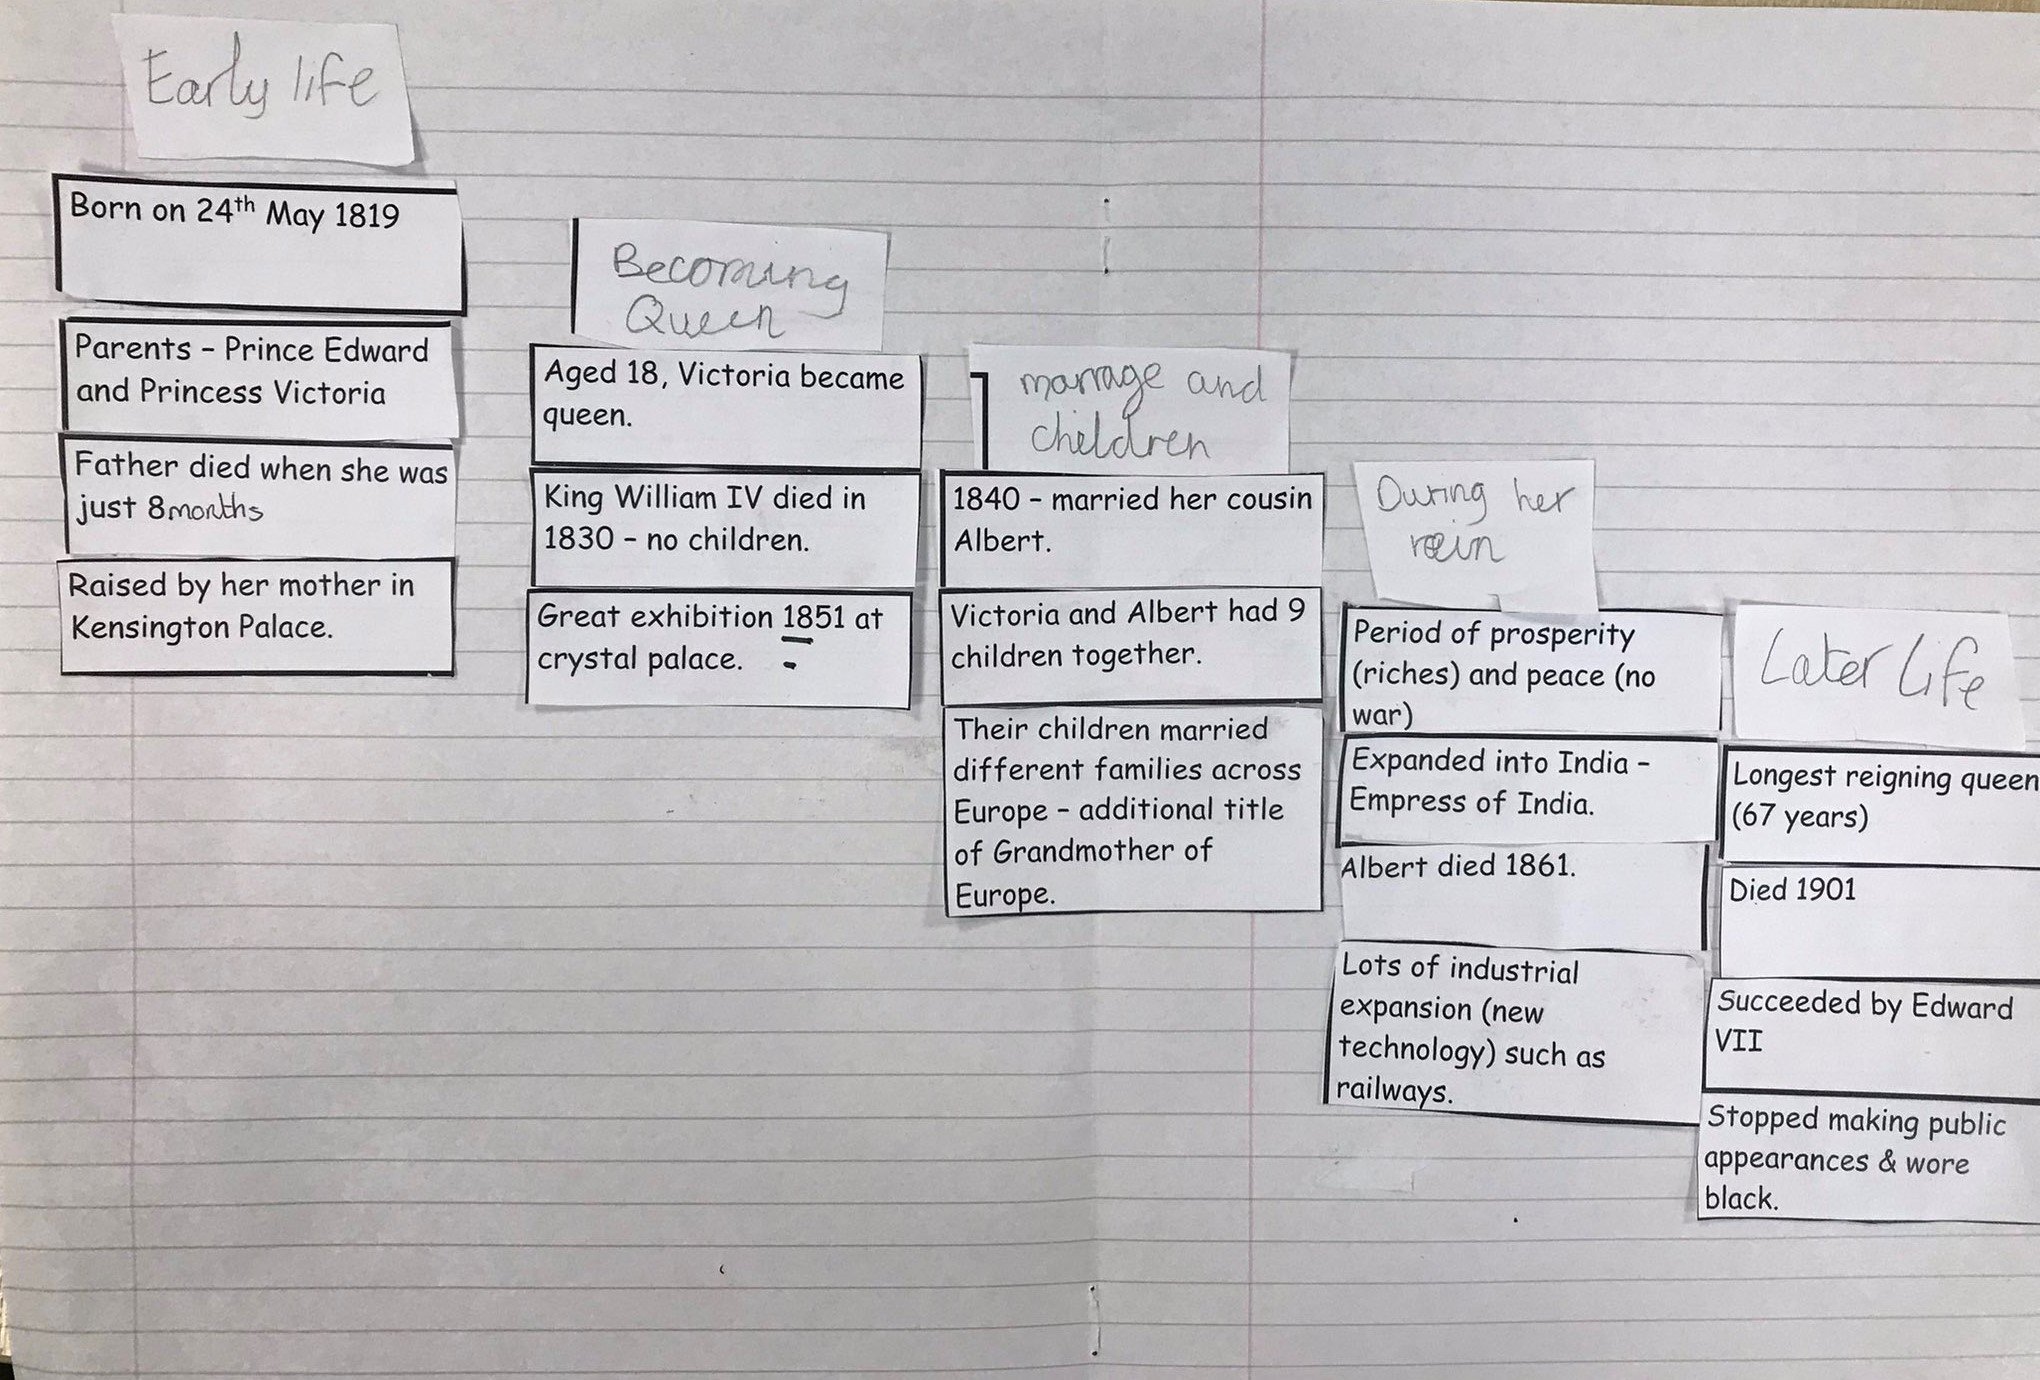 Early life
Born on 24th May 1819
Parents - Prince Edward
and Princess Victoria
Father died when she was
just 8months
Raised by her mother in
Kensington Palace.
Becoming
Queen
Aged 18, Victoria became
queen.
King William IV died in
1830 - no children.
Great exhibition 1851 at
crystal palace.
marrage and
children
1840 - married her cousin
Albert.
Victoria and Albert had 9
children together.
Their children married
different families across
Europe - additional title
of Grandmother of
Europe.
During her
rein
Period of prosperity
(riches) and peace (no
war)
Expanded into India -
Empress of India.
Albert died 1861.
Lots of industrial
expansion (new
technology) such as
railways.
Later life
Longest reigning queen
(67 years)
Died 1901
Succeeded by Edward
VII
Stopped making public
appearances & wore
black.